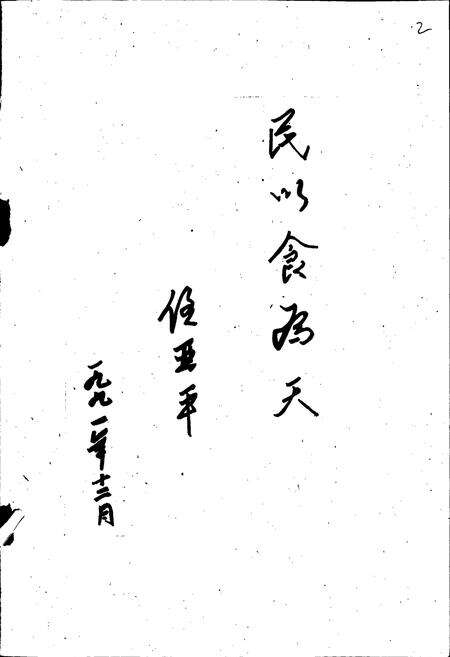 2
民以食為天
任亚平
一九九一年十二月